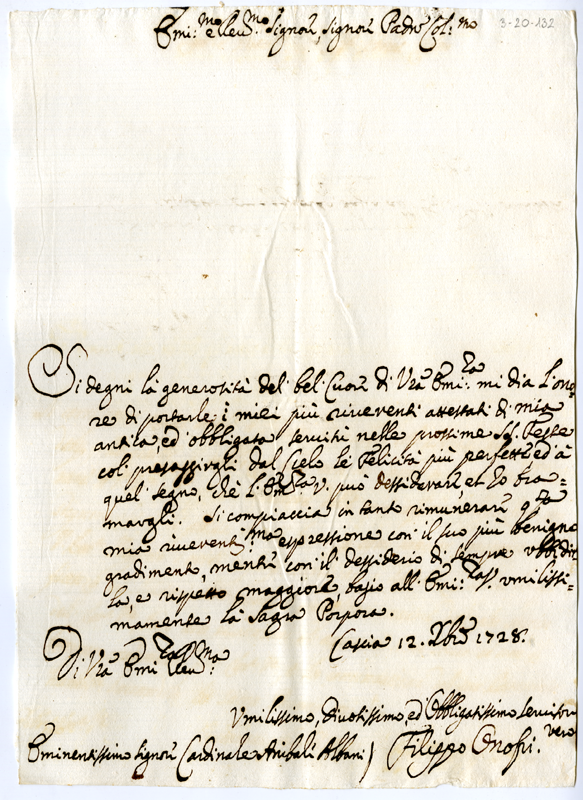 3-20-132
Emi:mo e Reu:mo Signore, Signore Padrõ Col:mo
Si degni la generosità del bel Cuore di Vrã Emi:za mi dia l'ono=
re di portarle i miei più riverenti attestati di mia
antica, ed obbligata servitù nelle prossime SS. Feste
col presaggirgli dal Cielo le Felicità più perfette, ed à
quel segno, che l'Em:za V. può dessiderare, et Io bra=
margli. Si compiaccia in tanto rimunerare q.ta
mia riverent:ma espressione con il suo più benigno
gradimento, mentre con il dessiderio di sempre vbbidir
la, e rispetto maggiore, bagio all' Emi:za V. vmilissi=
mamente la Sagra Porpora.
Cascia 12. Xbre 1728.
Di Vrã Emi:za Reu:ma
Vmilissimo, Divotissimo, ed Obbligatissimo Servitore
vero
Eminentissimo Signore Cardinale Anibale Albani) Filippo Onofri.